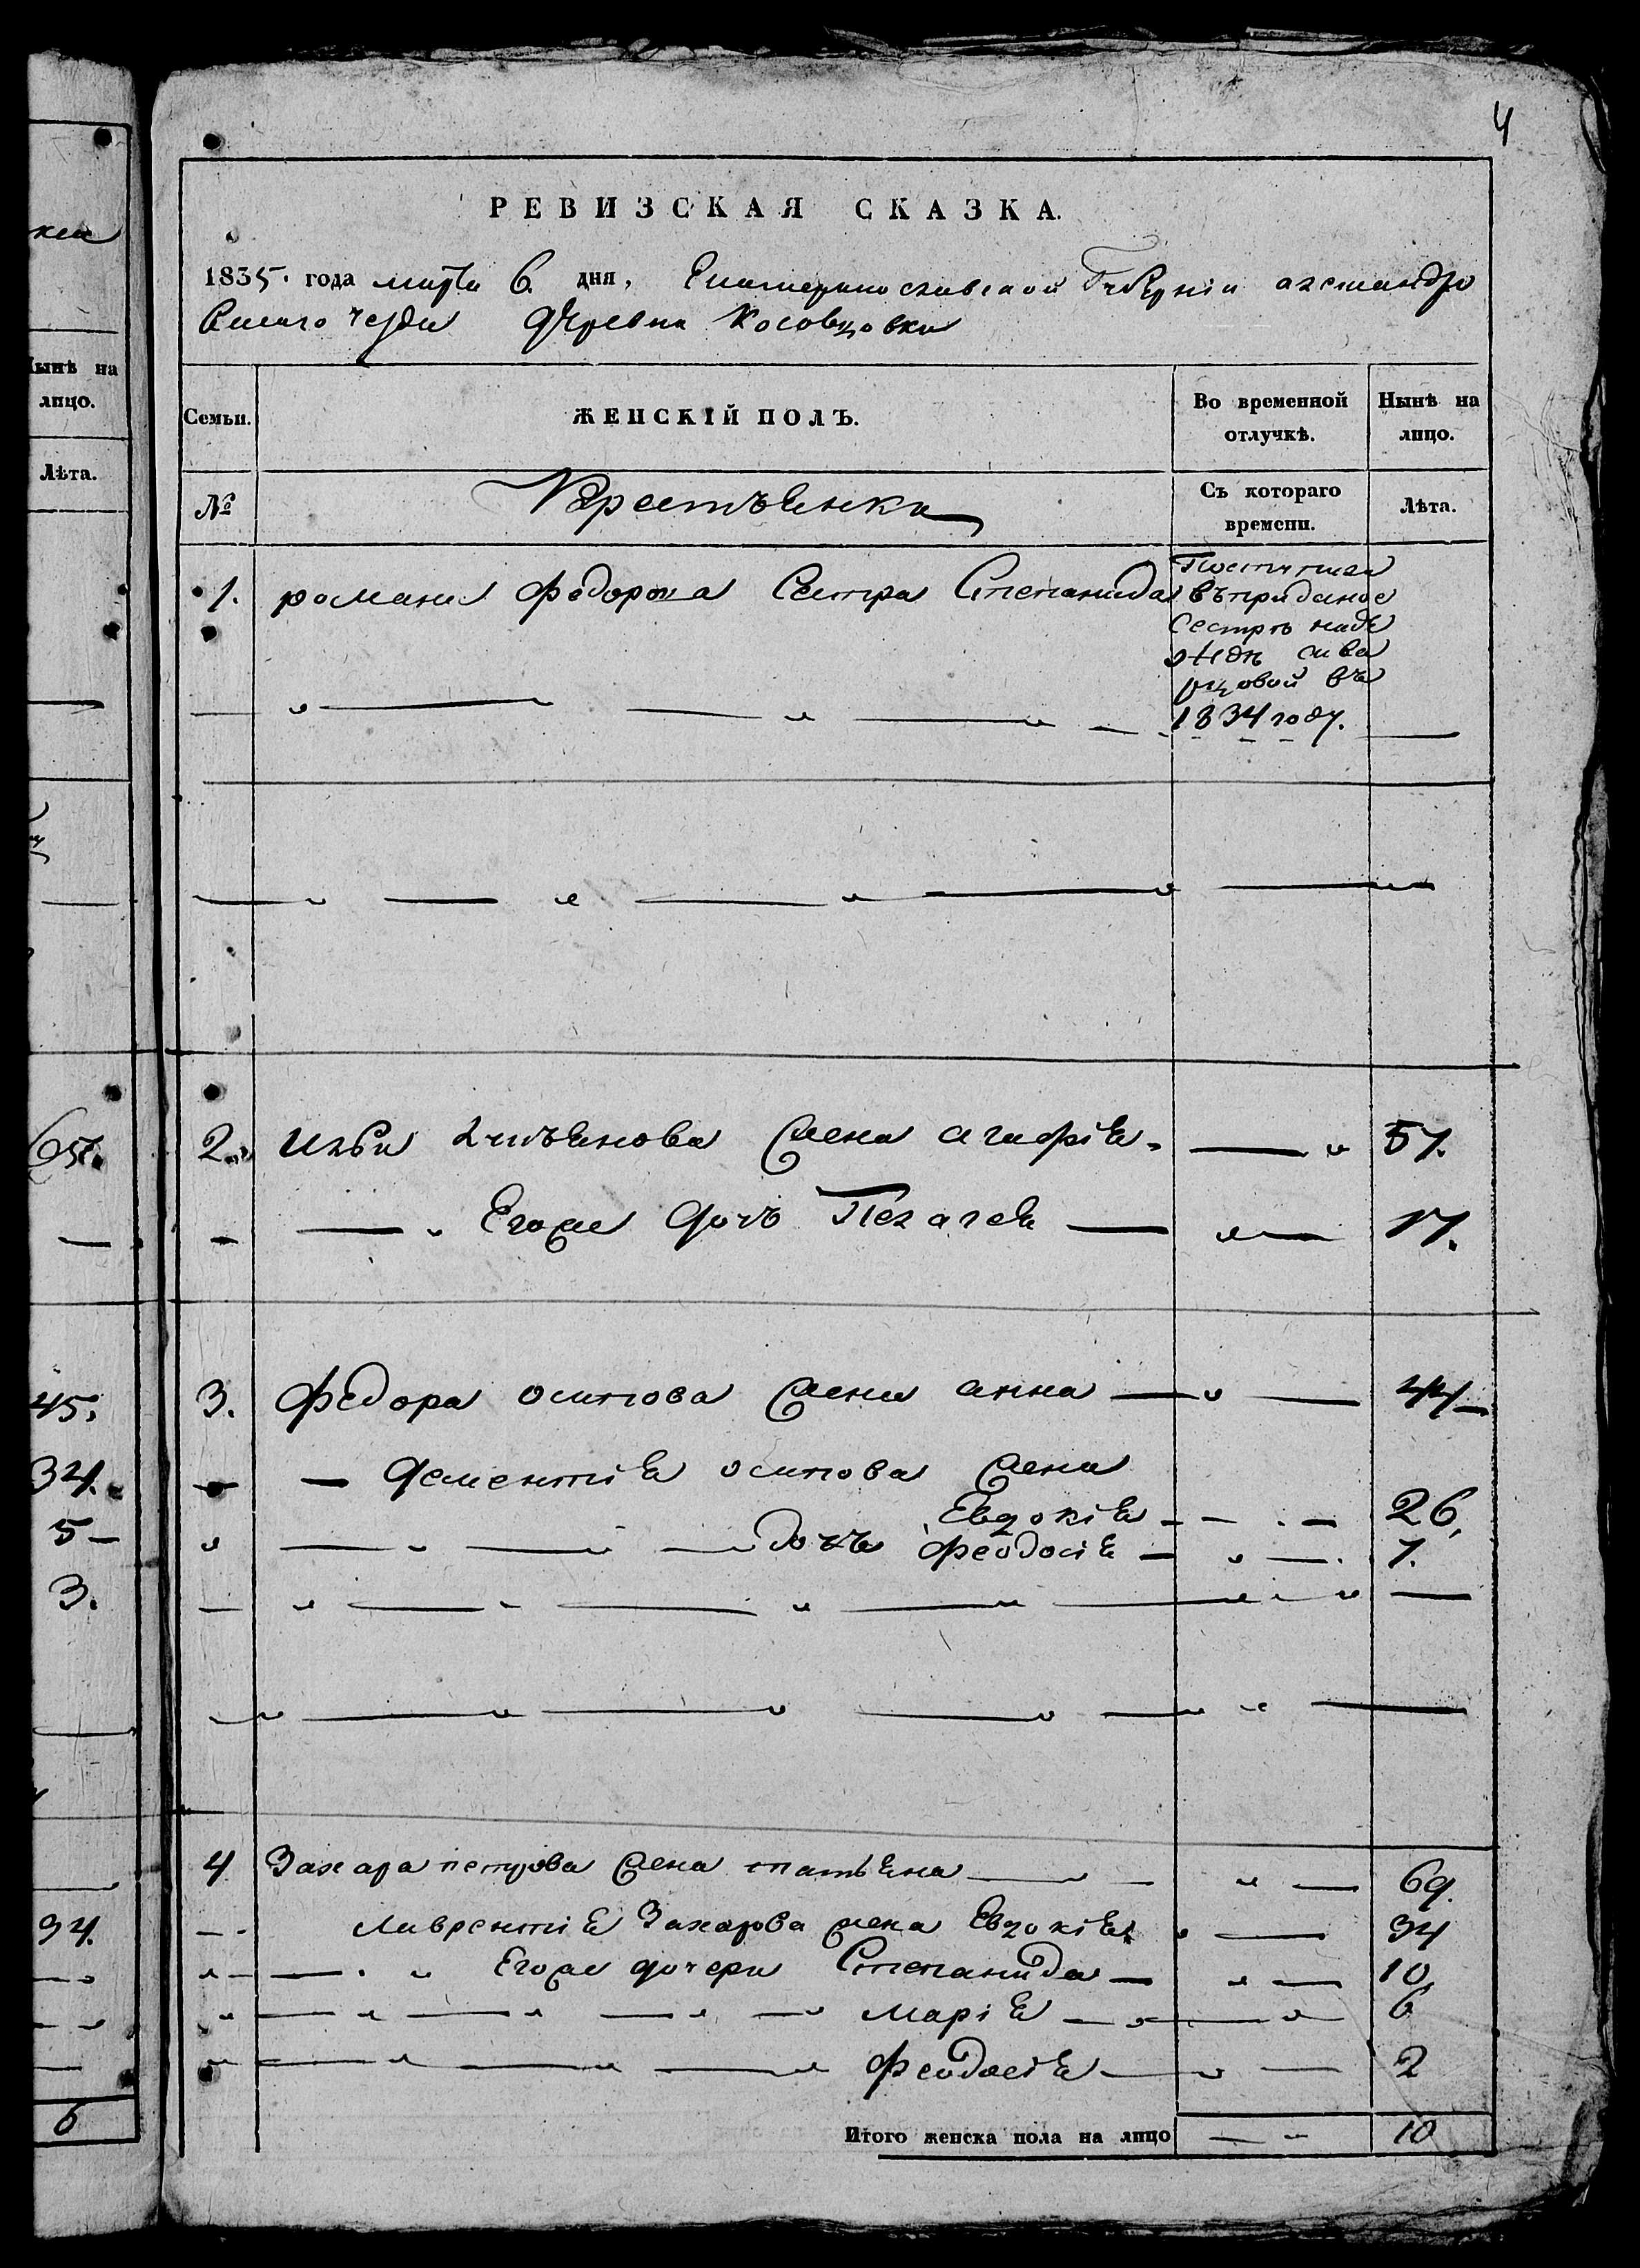 4
РЕВИЗСКАЯ СКАЗКА.
1835. года марта 6. дня, Екатеринославской Губерніи александро
вскаго уезда деревни Косовцовки
Семьи.
ЖЕНСКІЙ ПОЛЪ.
Во временной
отлучкѣ.
Нынѣ на
лицо.
№
Крестьянки
Съ котораго
времени.
Лѣта.
1. романа федорова Сестра Степанида
Поступила
въ приданое
Сестрѣ наде
ждѣ
въ
1834 году.
2. Ильи жена агафія 57.
Егоже дочь Пелагея 17.
3. федора осипова жена анна 44
дементія осипова жена
Евдокія 26,
дочь феодосія 7.
4 Захара петрова жена татьяна 69.
Лаврентія Захарова жена Евдокія 34
Егоже дочери Степанида 10,
марія 6
феодосія 2
Итого женска пола на лицо 10
кси
Нынѣ на
лицо.
Лѣта.
65.
45.
34.
5
3.
34.
6